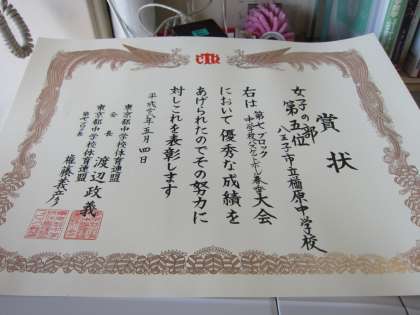 賞状
女子の部
第五位
八王子市立楢原中学校
右は第七ブロック
中学校バスケットボール春季大会
において優秀な成績を
あげられたのでその努力に
対しこれを表彰します
平成 年五月四日
東京都中学校体育連盟
会長 渡辺政義
東京都中学校体育連盟
第七ブロック長